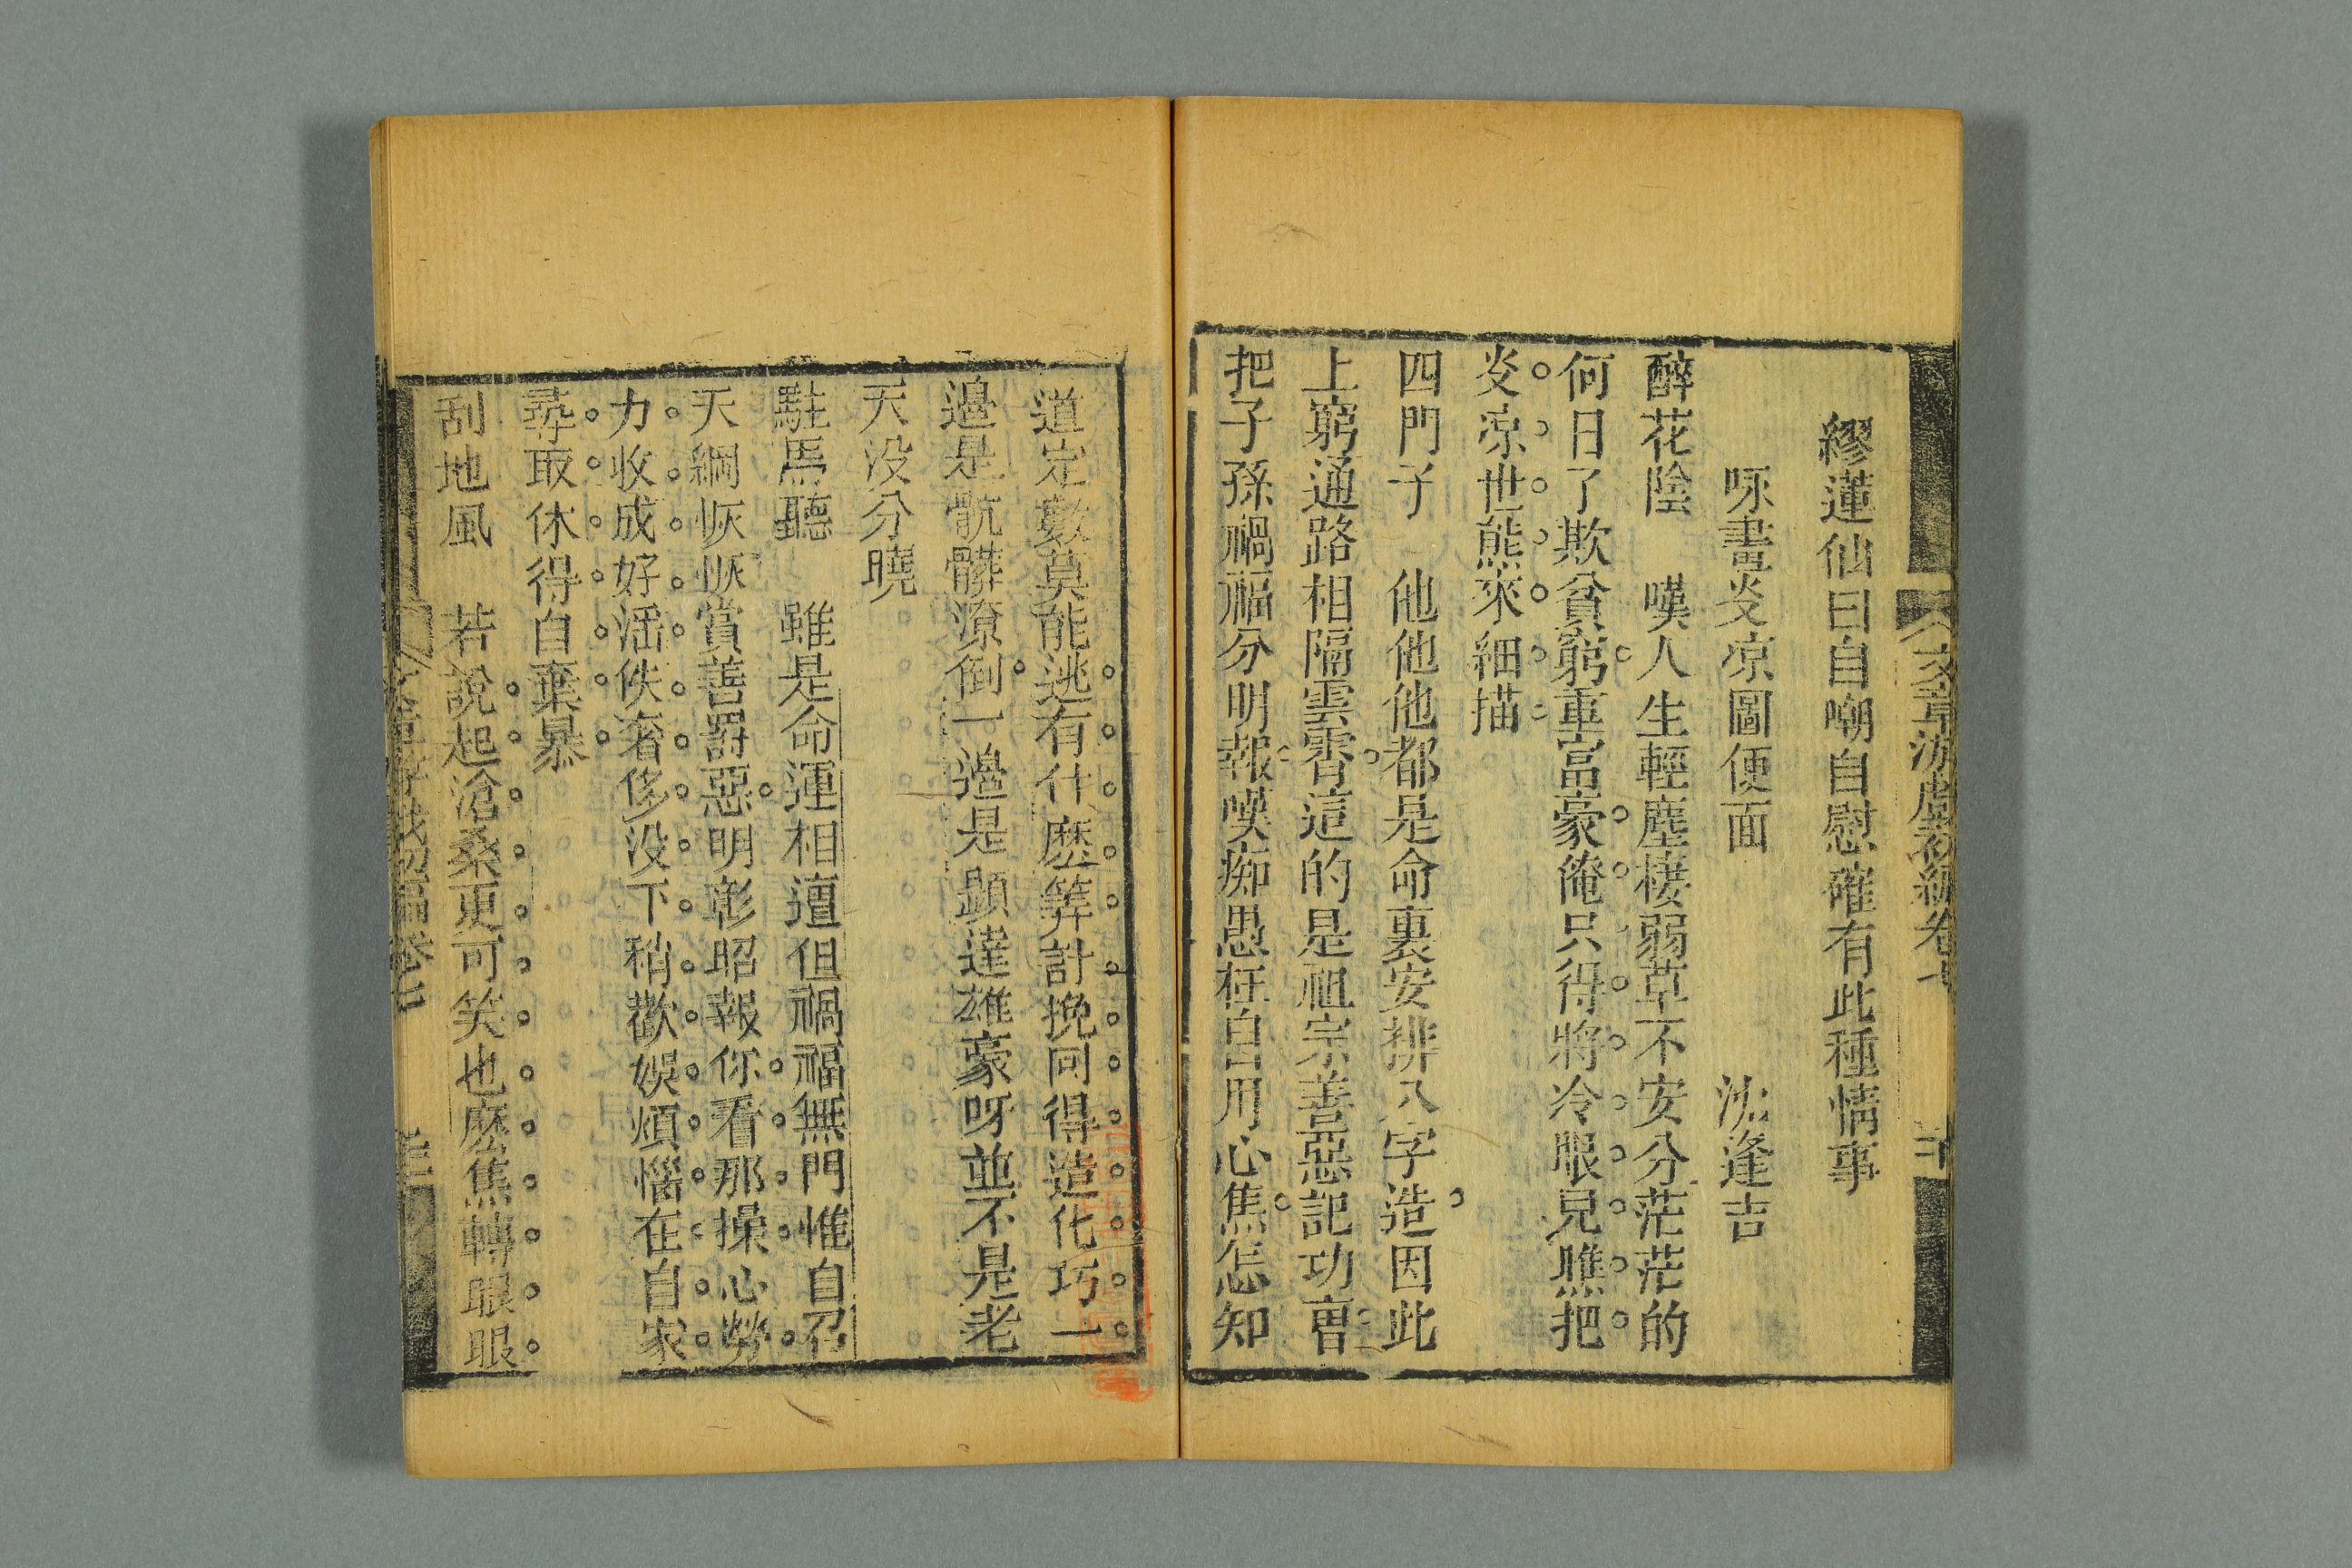 繆蓮仙曰自嘲自慰確有此種情事
咏畫炎凉圖便面 沈逢吉
醉花陰 嘆人生輕塵棲弱草不安分茫茫的
何日了欺貧窮重富豪俺只得將冷眼兒瞧把
炎凉世熊來細描
四門子 他他他都是命裏安排八字造因此
上窮通路相隔雲霄這的是祖宗善惡記功曹
把子孫禍福分明報嘆痴愚枉自用心焦怎知
道定數莫能逃有什麽筭計挽回得造化巧一
邉是骯髒潦倒一邉是顯達雄豪呀並不是老
天没分曉
駐馬聽 雖是命運相邅但禍福無門惟自召
天網恢恢賞善罸惡明彰昭報你看那操心勞
力收成好滛佚奢侈没下稍歡娛煩惱在自家
尋取休得自棄暴
刮地風 若說起滄桑更可笑也麽焦轉眼眼